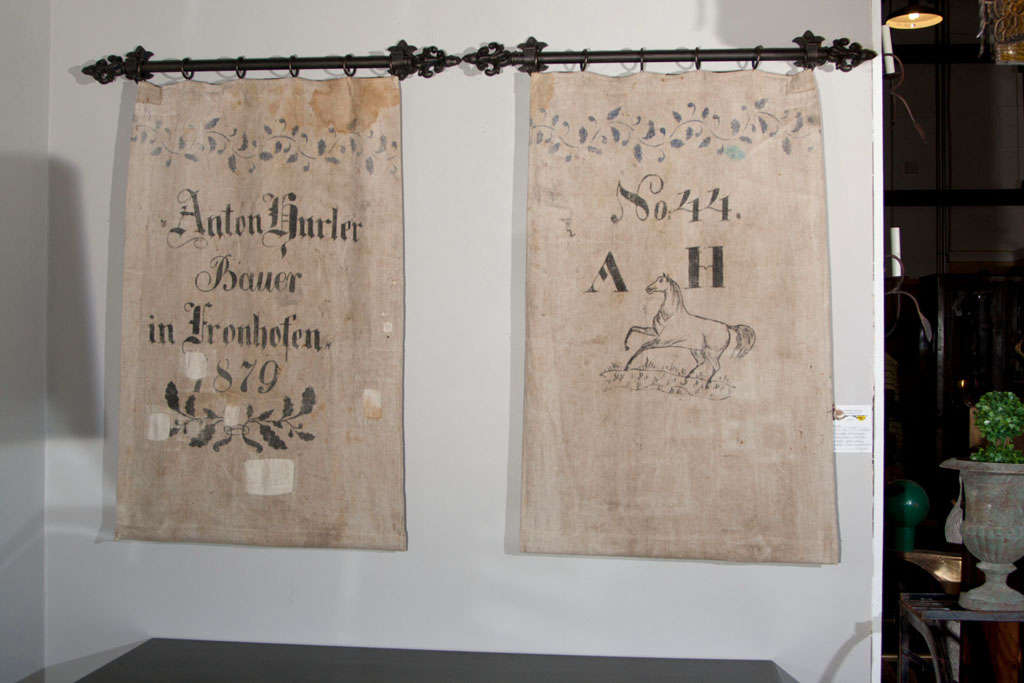 Anton Hurler
Bauer
in Fronhofen.
1879
No. 44.
A H